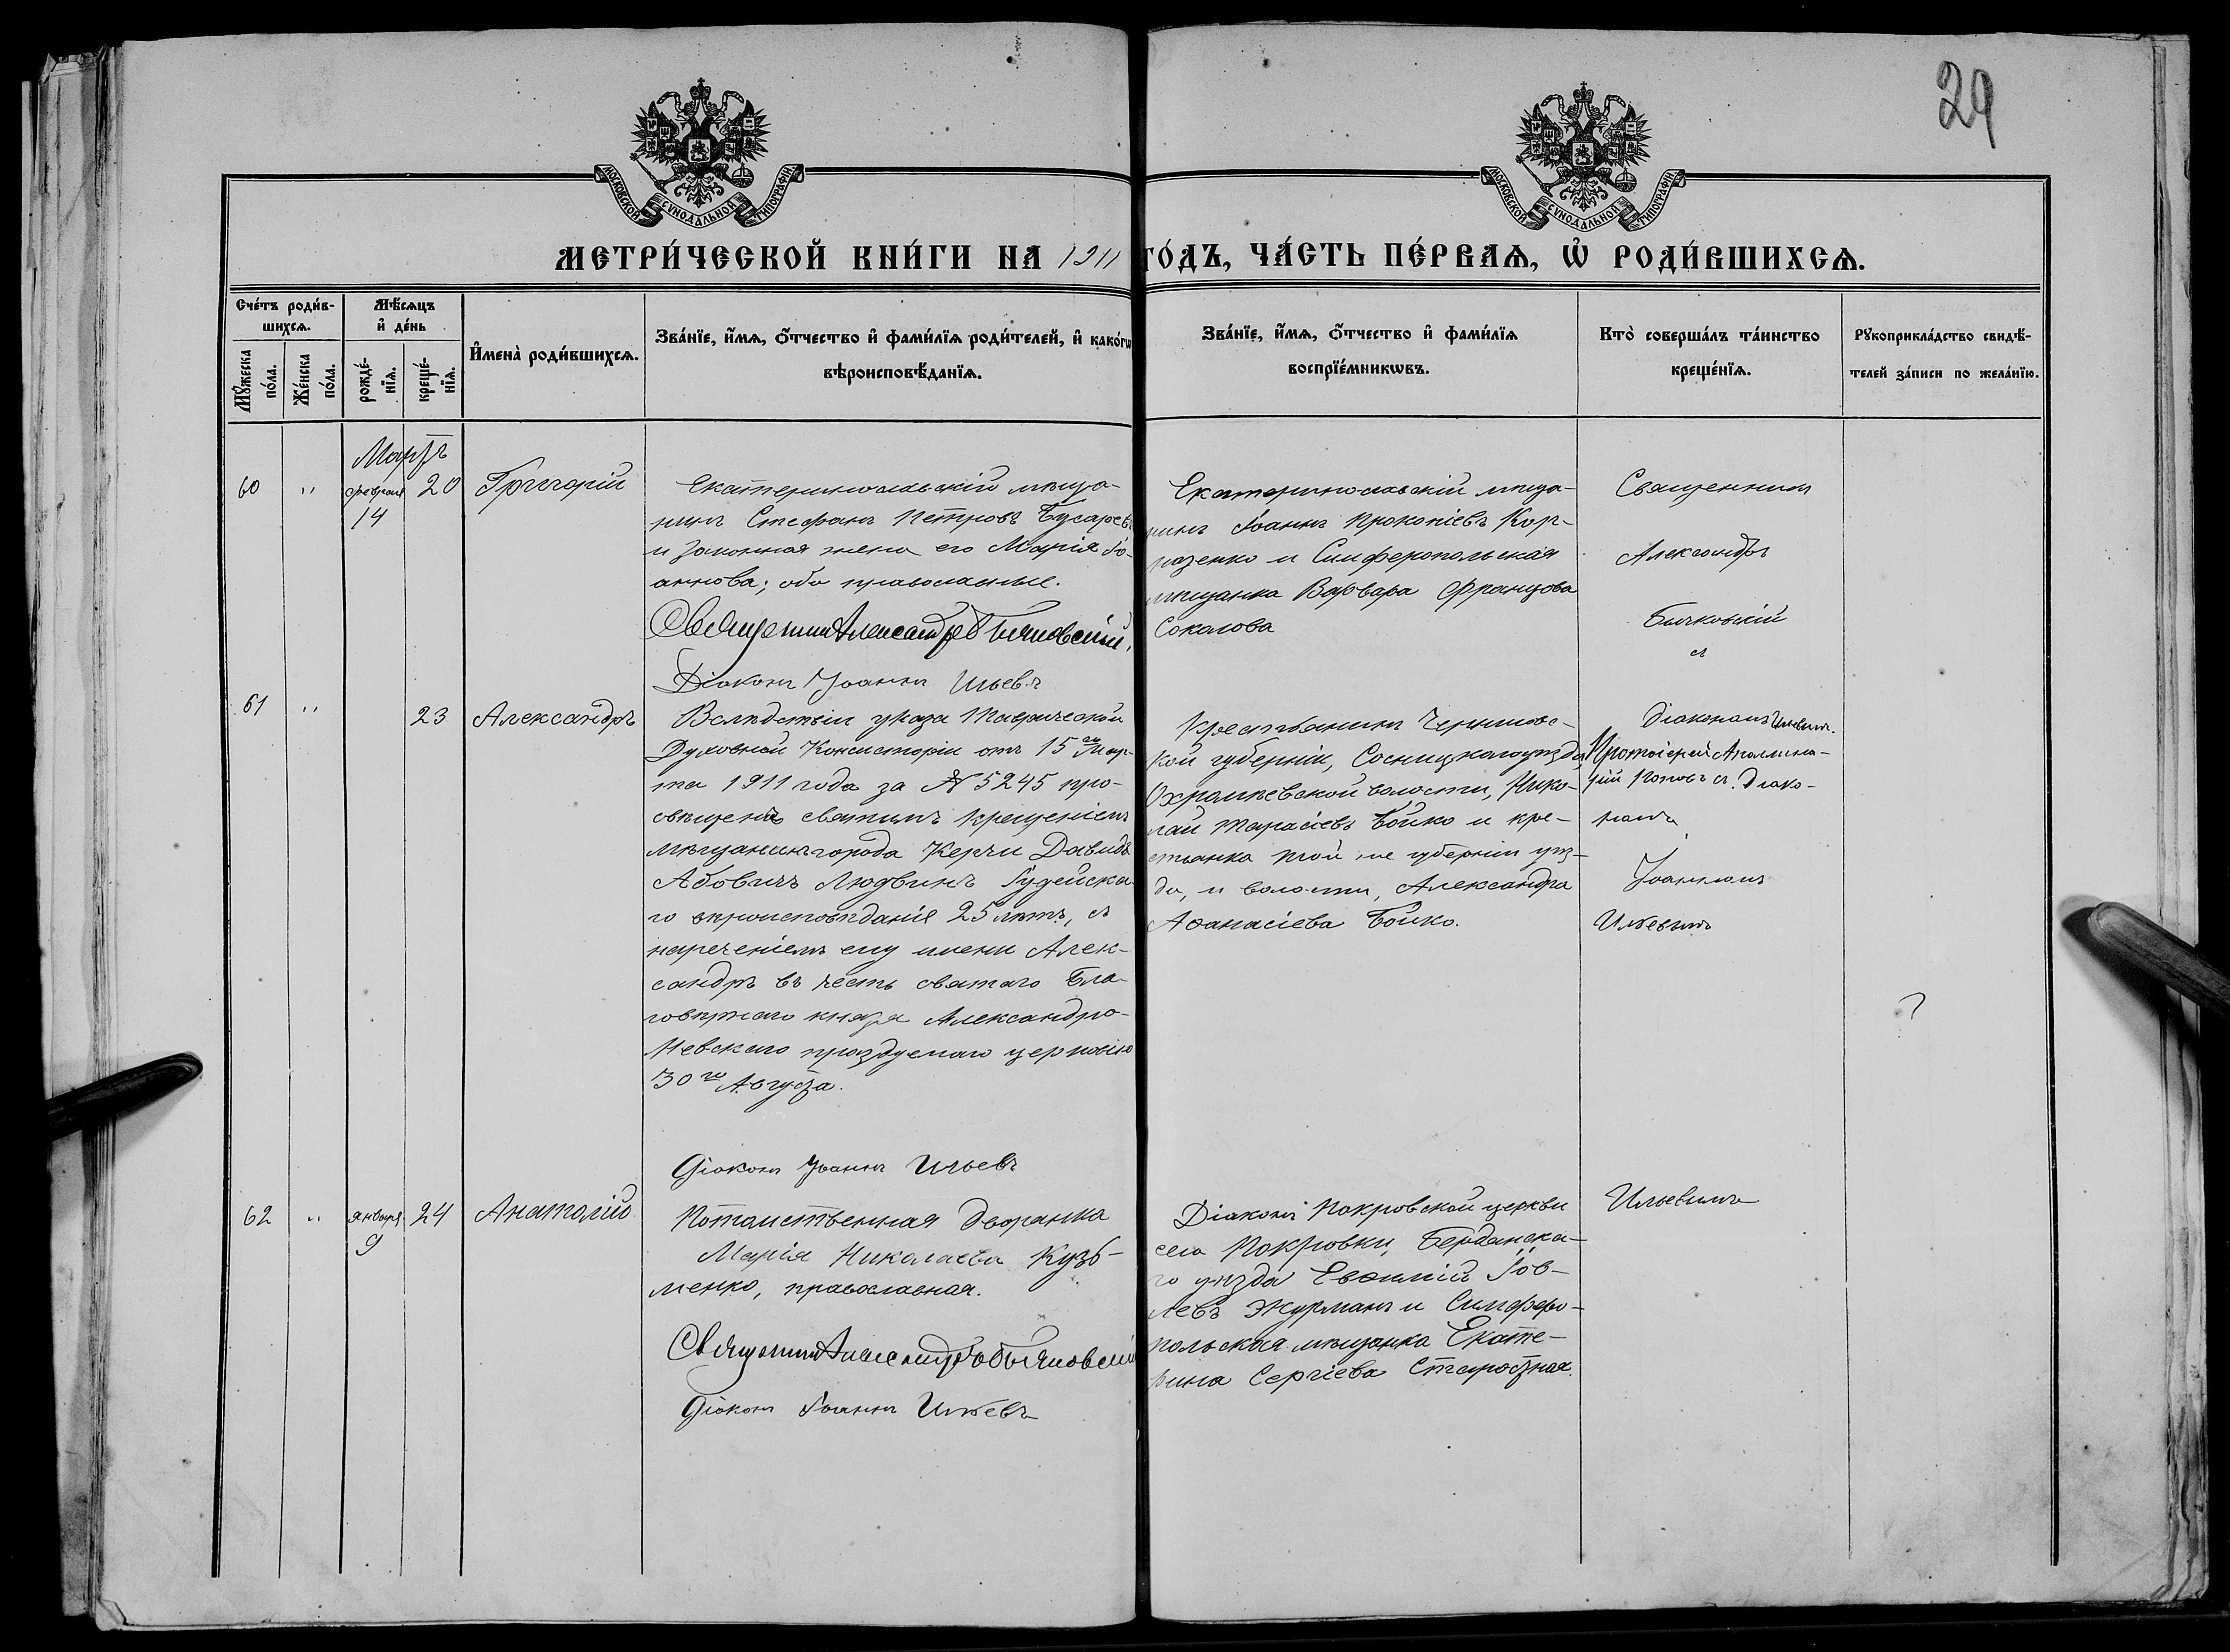 29
МОСКОВСКОЙ СУНОДАЛЬНОЙ ТИПОГРАФІИ
МОСКОВСКОЙ СУНОДАЛЬНОЙ ТИПОГРАФІИ
МЕТРИ́ЧЕСКОЙ КНИ́ГИ НА 1911 ГО́ДЪ, ЧА́СТЬ ПЕ́РВАѦ, Ѡ РОДИ́ВШИХСѦ.
Сче́тъ роди́в-
шихсѧ.
Мꙋ́жеска
по́ла.
Же́нска
по́ла.
Мѣ́сѧцъ
и҆ де́нь
рожде́-
нїѧ.
креще́-
нїѧ.
И҆мена̀ роди́вшихсѧ.
Зва́нїе, и҆́мѧ, ѻ҆́тчество и҆ фами́лїѧ роди́телей, и҆ како́гѡ
вѣроисповѣ́данїѧ.
Зва́нїе, и҆́мѧ, ѻ҆́тчество и҆ фами́лїѧ
воспрїе́мникѡвъ.
Кто̀ соверша́лъ та́инство
креще́нїѧ.
Рꙋкоприкла́дство свидѣ́-
телей за́писи по жела́нїю.
Мартъ
60
"
февраля
14
20
Григорій
Екатеринославскій мѣща-
нинъ Стефанъ Петровъ Бусаревъ
и законная жена его Марія Іо-
аннова; оба православные.
Священникъ Александръ Бычковскій.
Діаконъ Іоаннъ Ильевъ
Екатеринославскій мѣща-
нинъ Іоаннъ Прокопіевъ Кор-
назенко и Симферопольская
мѣщанка Варвара Францова
Соколова
Священникъ
Александръ
Бычковскій
съ
діакономъ Ильевымъ.
61
"
23
Александръ
Вслѣдствіи указа Таврической
Духовной Консисторіи отъ 15го Мар-
та 1911 года за № 5245 про-
свѣщенъ святымъ крещеніемъ
мѣщанинъ города Керчи Давидъ
Абовичъ Людвинъ Іудейска-
го вѣроисповѣданія 25 лѣтъ, съ
нареченіемъ ему имени Алек-
сандръ въ честь святаго Бла-
говѣрнаго князя Александра-
Невскаго празднуемаго церковію
30го Августа.
Діаконъ Іоаннъ Ильевъ
Крестьянинъ Черниговс-
кой губерніи, Сосницкаго уѣзда,
Охрамѣевской волости, Нико-
лай Тарасіевъ Бойко и кре-
стьянка той же губерніи уѣз-
да, и волости, Александра
Аѳанасіева Бойко.
Протоіерей Аполлина-
рій Поповъ съ Діако-
номъ
Іоанномъ
Ильевымъ
62
"
января
9
24
Анатолій
Потомственная дворянка
Марія Николаева Кузь-
менко, православная.
Священникъ Александръ Бычковскій
Діаконъ Іоаннъ Ильевъ
Діаконъ Покровской церкви
села Покровки, Бердянска-
го уѣзда Евѳимій Іов-
левъ Журманъ и Симферо-
польская мѣщанка Екате-
рина Сергіева Старостная.
Ильевымъ